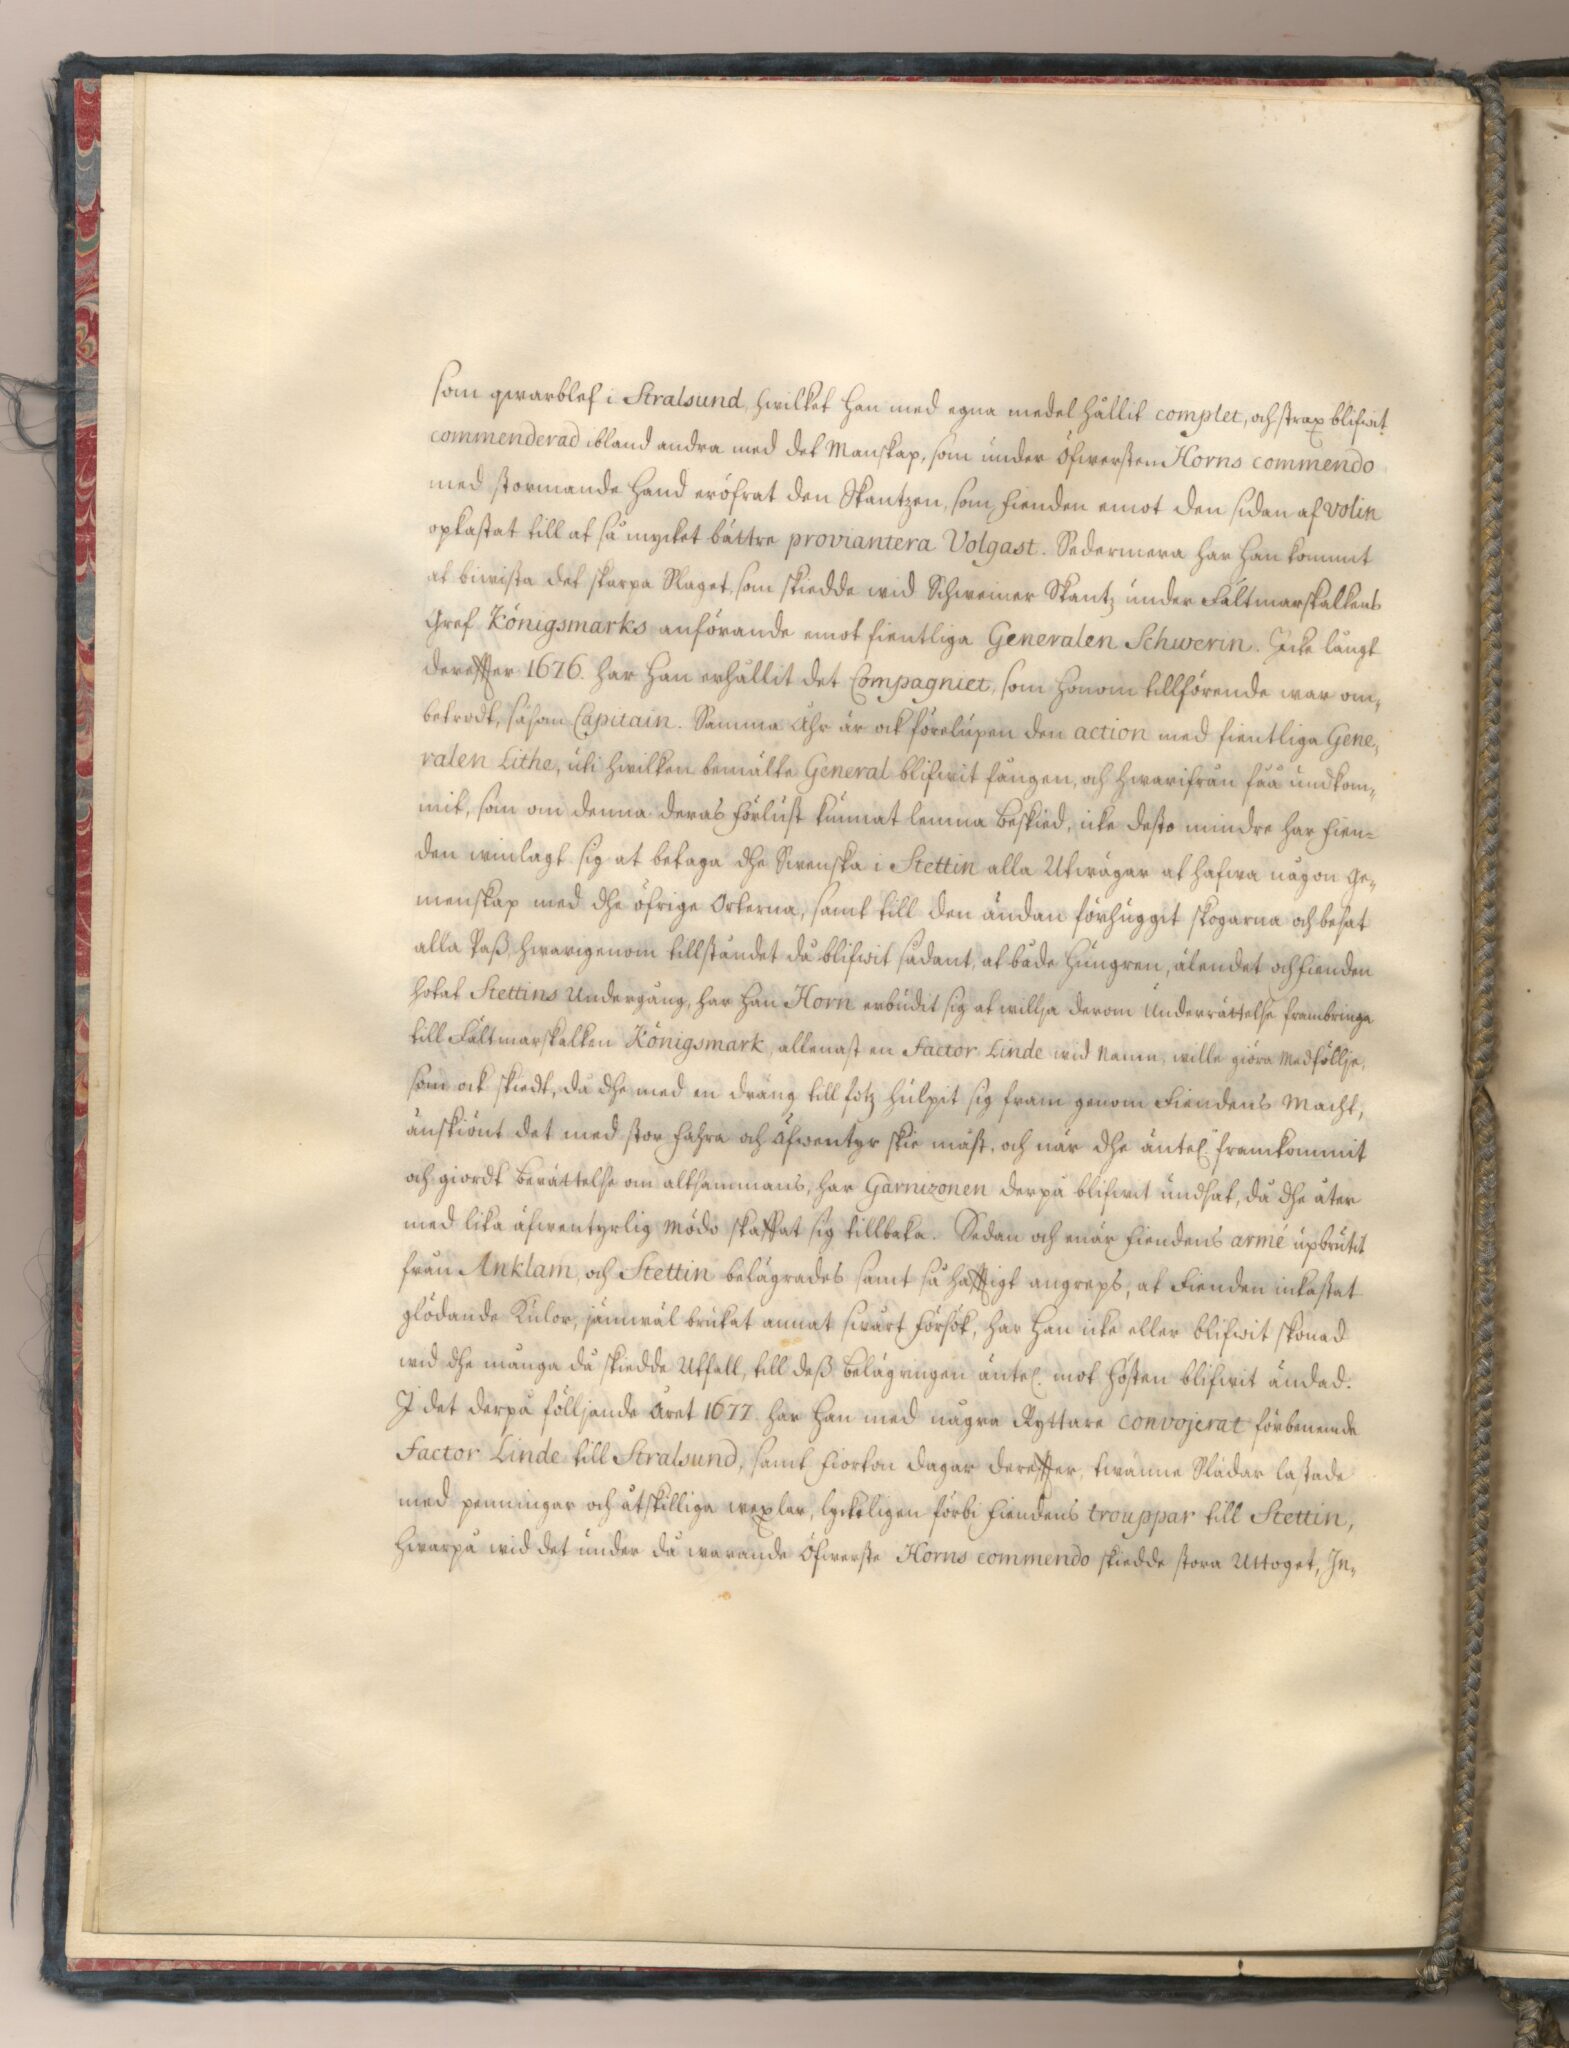 som qwarblef i Stralsund, hwilket han med egna medel hållit complet, och strax blifwit
commenderad ibland andra med det Manskap, som under Öfwersten Horns commendo
med stormande hand eröfrat den Skantzen, som fienden emot den sidan af Volin
opkastat till at så mycket bättre proviantera Volgast. Sedermera har han kommit
at biwista det skarpa Slaget, som skiedde wid Schweiner Skantz under Fältmarskalkens
Gref Königsmarks anförande emot fientliga Generalen Schwerin. Icke långt
derefter 1676. har han erhållit det Compagniet, som honom tillförende war om„
betrodt, såsom Capitain. Samma Åhr är ock förelupen den action med fientliga Gene„
ralen Lithe, uti hwilken bemälte General blifwit fången, och hwarifrån fåå undkom„
mit, som om denna deras förlust kunnat lemna beskied, icke desto mindre har Fien=
den winlagt sig at betaga dhe Swenska i Stettin alla Utwägar at hafwa någon Ge„
menskap med dhe öfrige Orterna, samt till den ändan förhuggit skogarna och besat
alla Paß, hwarigenom tillståndet då blifwit sådant, at både hungren, älendet och fienden
hotat Stettins Undergång, har han Horn erbudit sig at willja derom Underrättelse frambringa
till Fältmarskalken Königsmark, allenast en Factor Linde wid Namn, wille giöra Medföllje,
som ock skiedt, då dhe med en dräng till fotz hulpit sig fram genom Fiendens Macht,
änskiönt det med stor fahra och Äfwentyr skie måst, och när dhe äntel. framkommit
och giordt berättelse om altsammans, har Garnizonen derpå blifwit undsat, då dhe åter
med lika äfwentyrlig Modo skaffat sig tillbaka. Sedan och enär Fiendens armé upbrutit
från Anklam, och Stettin belägrades samt så häfftigt angreps, at Fienden inkastat
glödande Kulor, jämwäl brukat annat swårt försök, har han icke eller blifwit skonad
wid dhe många då skiedde Utfall, till deß belägringen äntel. mot hösten blifwit ändad.
I det derpå följjande Året 1677. har han med några Ryttare convojerat förbenemde
Factor Linde till Stralsund, samt fiorton dagar derefter, twänne Slädar lastade
med penningar och åtskilliga wexlar, lyckeligen förbi Fiendens trouppar till Stettin,
hwarpå wid det under då warande Öfwerste Horns commendo skiedde stora Uttoget, In„